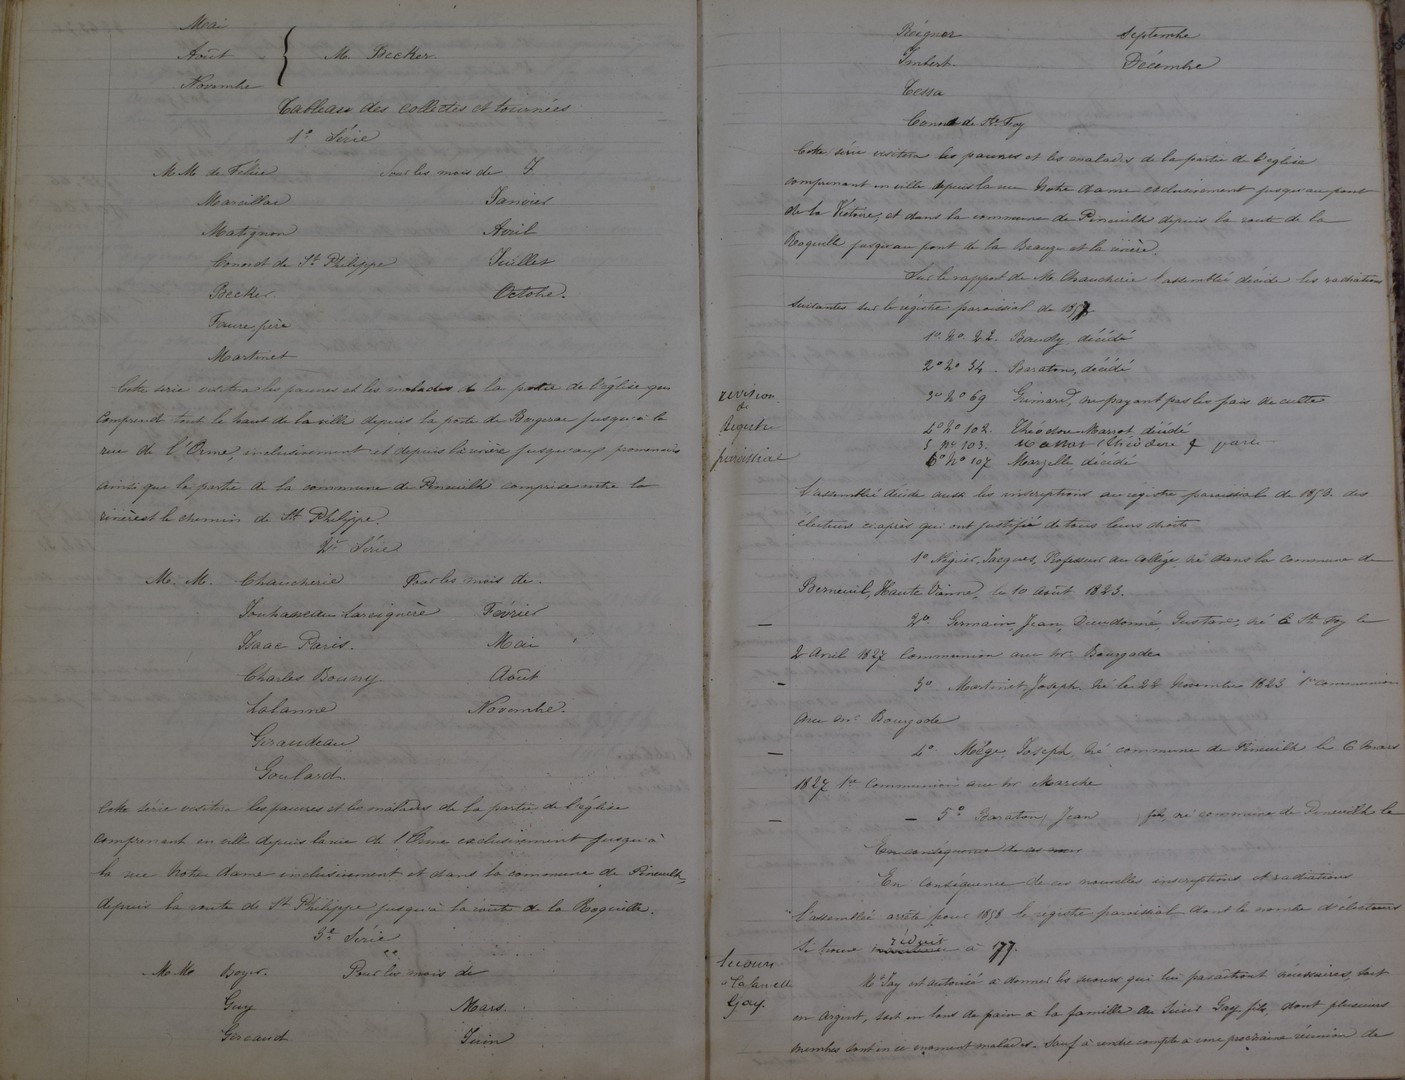 Mai
Août
Novembre
Mr. Becker.
Tableau des collectes et tournées
1e Série
M.M. de Félice Pour les mois de J
Marcillac Janvier
Matignon Avril
Conord de St. Philippe Juillet
Becker Octobre.
Faure, père
Martinet
Cette série visitera les pauvres et les malades de la partie de l'église qui
comprend tout le haut de la ville depuis la porte de Bergerac jusqu'à la
rue de l'Orme, inclusivement et depuis la rivière jusqu'aux promenades
ainsi que la partie de la commune de Pineuilh comprise entre la
rivière et le chemin de St. Philippe.
2e Série
M. M. Chaucherie Pour les mois de.
Jouhanneau Lareignère Février
Isaac Paris. Mai
Charles Bouny Août
Lalanne Novembre.
Geraudeau
Goulard.
Cette série visitera les pauvres et les malades de la partie de l'église
comprenant en ville depuis la rue de l'Orme exclusivement jusqu'à
la rue Notre Dame inclusivement et dans la commune de Pineuilh,
depuis la route de St. Philippe jusqu'à la route de la Roquille.
3e Série
M.M. Boyer. Pour les mois de
Guy Mars.
Gereaud Juin
Reignier Septembre
Imbert. Décembre
Tessa
Conord de Ste. Foy
Cette série visitera les pauvres et les malades de la partie de l'église
comprenant en ville depuis la rue Notre Dame exclusivement jusqu'au pont
de la Victoire, et dans la commune de Pineuilh depuis la route de la
Roquille jusqu'au pont de la Beauze et la rivière.
Sur le rapport de Mr. Chaucherie l'assemblée décide les radiations
suivantes sur le régistre paroissial de 1857
1o. No. 22. Baudy, décédé
2o No 34. Baraton, décédé
révision
du
Régistre
paroissial
3o No 69 Grimard, ne payant pas les frais de culte
4o No 102. Théodore Marrot, décédé
5 No 103. Marrot Théodore f parti
6o No 107 Marzelle, décédé
L'assemblée décide aussi les inscriptions au régistre paroissial de 1858 des
électeurs ci après qui ont justifié de tous leurs droits
1o Nigier, Jacques, Professeur au Collége né dans la commune de
Berneuil, Haute Vienne, le 10 août 1823.
2o. Germain, Jean, Dieudonné, Gustave, né à Ste. Foy le
2 Avril 1827 Communion avec Mr. Bourgade
3o Martinet Joseph, né le 22 Novembre 1823 1re communion
avec Mr. Bourgade
4o Mége Joseph, né commune de Pineuilh le 6 Mars
1827 1re Communion avec Mr. Marche
5o Baraton, Jean fils, né commune de Pineuilh le
En conséquence de ces nouv
En conséquence de ces nouvelles inscriptions et radiations
l'assemblée arrête pour 1858 le régistre paroissial dont le nombre d'électeurs
se trouve réduit à 77.
Secours
à la famille
Gay.
Mr. Jay est autorisé à donner les secours qui lui paraîtront nécessaires, soit
en argent, soit en bons de pain à la famille du Sieur Gay fils, dont plusieurs
membres sont en ce moment malades. Sauf à rendre compte à une prochaine réunion de